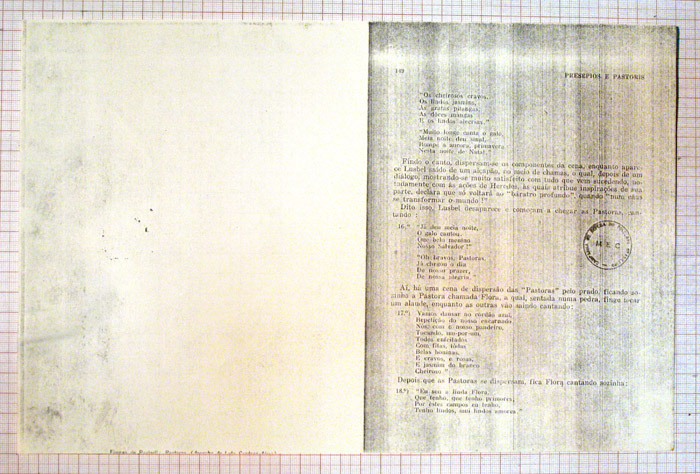 PRESEPIOS E PASTORIS
"Os cheirosos cravos,
Os lindos jasmins,
As gratas pitangas,
As doces mangas
E os lindos
"Muito longe canta o galo,
Meia noite deu sinal,
Rompe a aurora, primavera
Nesta noite de Natal."
Findo o canto, dispersam-se os componentes da cena, enquanto apare-
ce Lusbel saído de um alçapão, no meio de chamas, o qual, depois de um
diálogo, mostrando-se muito satisfeito com tudo que vem sucedendo, no-
tadamente com as ações de Herodes, às quais atribue inspirações de sua
parte, declara que só voltará ao "báratro profundo", quando
se transformar o mundo!"
Dito isso, Lusbel desaparece e começam a chegar as Pastoras, can-
tando:
16.ª "Já deu meia noite,
O galo cantou,
Que belo menino
Nosso Salvador!"
"Oh bravos, Pastoras
Já chegou o dia
Do nosso prazer,
De nossa alegria."
MEC
Aí, há uma cena de dispersão das "Pastoras" pelo prado, ficando so-
zinha a Pastora chamada Flora, a qual, sentada numa pedra, finge tocar
um alaude, enquanto as outras vão saindo cantando:
17.ª) Vamos dansar no cordão azul,
Repetição do nosso encarnado
Nós, com o nosso pandeiro,
Tocando, um-por-um,
Todos enfeitados
Com fitas, tôdas
Belas boninas,
E cravos, e rosas,
E jasmins do branco
Cheiroso."
Depois que as Pastoras se dispersam, fica Flora cantando sozinha:
18.ª) "Eu sou a linda Flora,
Que tenho, que tenho primores,
Por êstes campos eu tenho,
Tenho lindos, mui lindos amores."